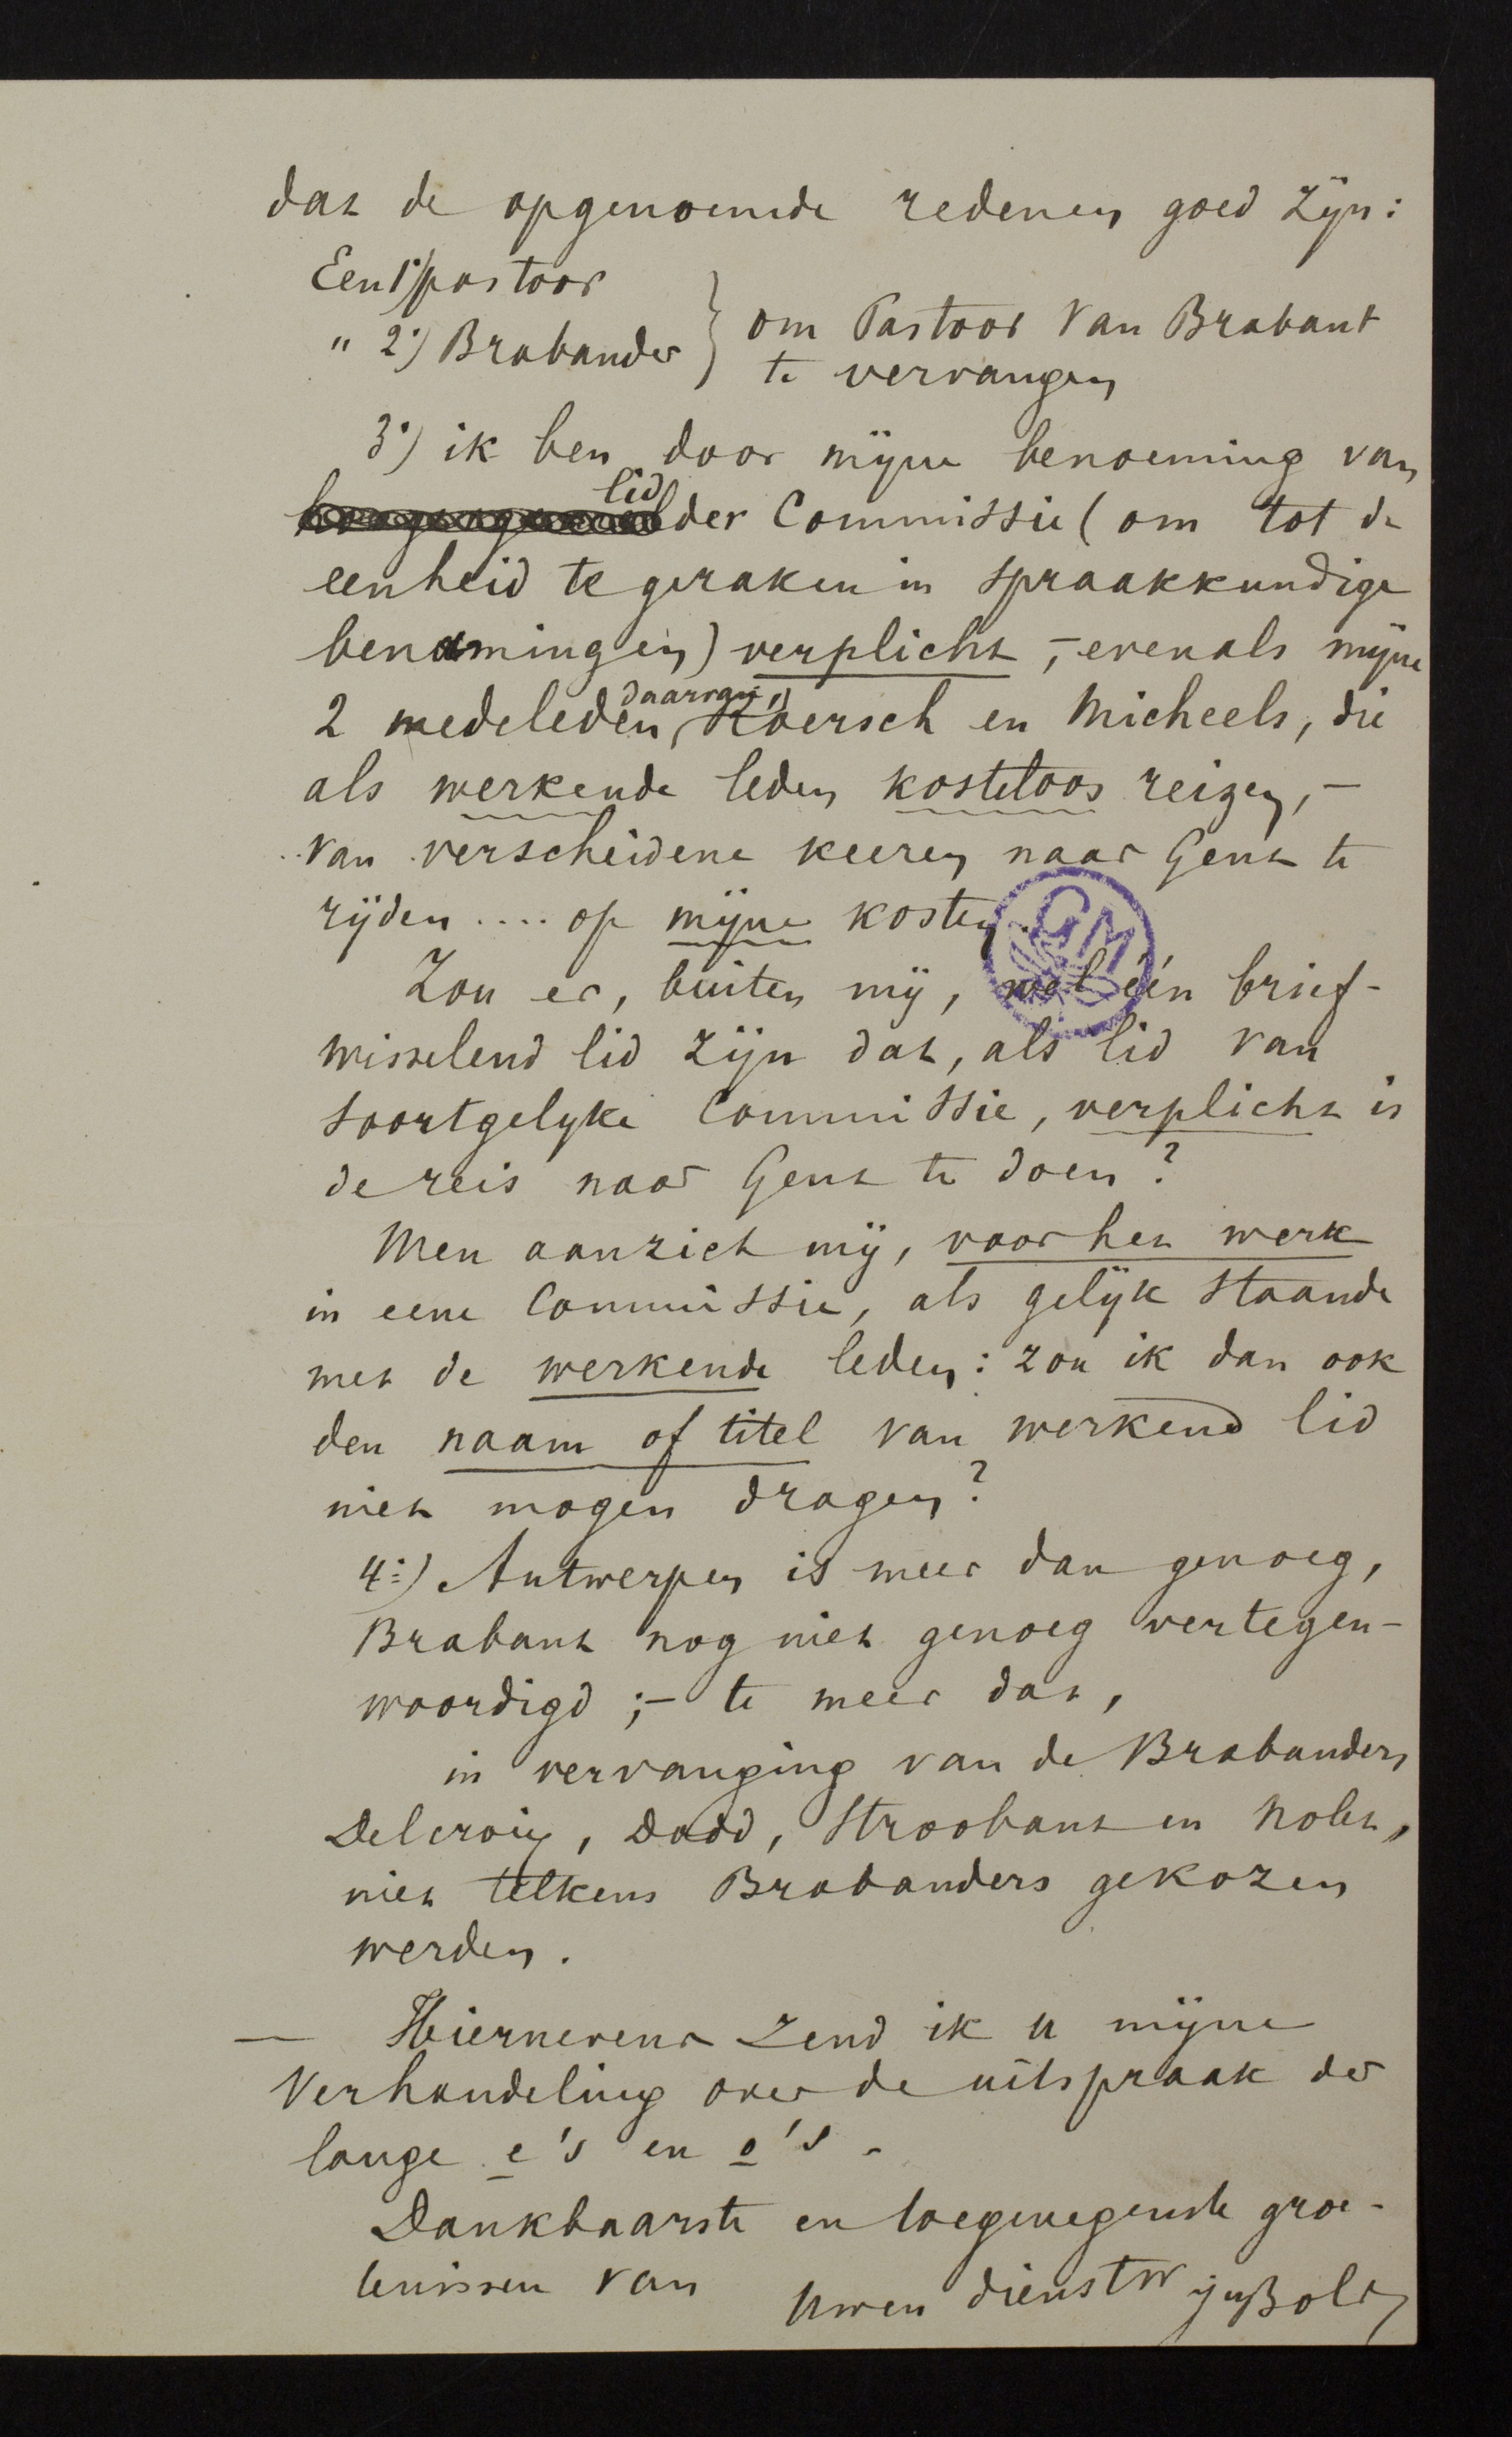 dat de opgenoemde redenen goed zijn:
Een 1°) pastoor
" 2°) Brabander } om Pastoor Van Brabant
te vervangen
3°) ik ben door mijne benoeming van
lid
der Commissie (om tot de
eenheid te geraken in spraakkundige
benamingen) verplicht, – evenals mijne
daarvan,
2 medeleden, Roersch en Micheels, die
als werkende leden kosteloos reizen, –
van verscheidene keeren naar Gent te
rijden .... op mijne kosten.
GM
Zou er, buiten mij, wel één brief-
wisselend lid zijn dat, als lid van
soortgelyke Commissie, verplicht is
de reis naar Gent te doen?
Men aanziet mij, voor het werk
in eene Commissie, als gelijk staande
met de werkende leden: zou ik dan ook
den naam of titel van werkend lid
niet mogen dragen?
4°) Antwerpen is meer dan genoeg,
Brabant nog niet genoeg vertegen-
woordigd; – te meer dat,
in vervanging van de Brabanders
Delcroix, Dodd, Stroobant en Nolet,
niet telkens Brabanders gekozen
werden.
— Hiernevens zend ik u mijne
Verhandeling over de uitspraak der
lange e's en o's.
Dankbaarste en toegenegenste groe-
tenissen van
Uwen dienstw
Bols